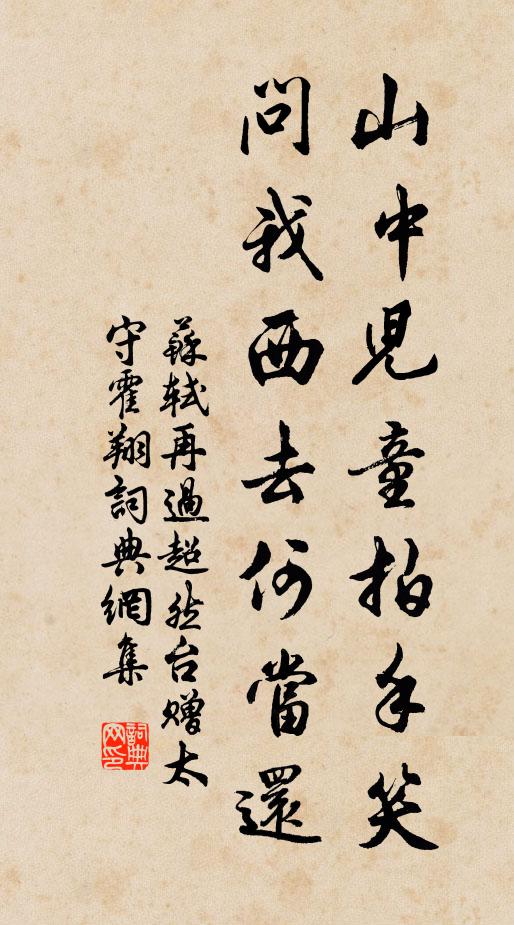 山中兒童拍手笑
問我西去何當還
蘇軾再過超然台贈太
守霍翔詞典網集
詞典
网印